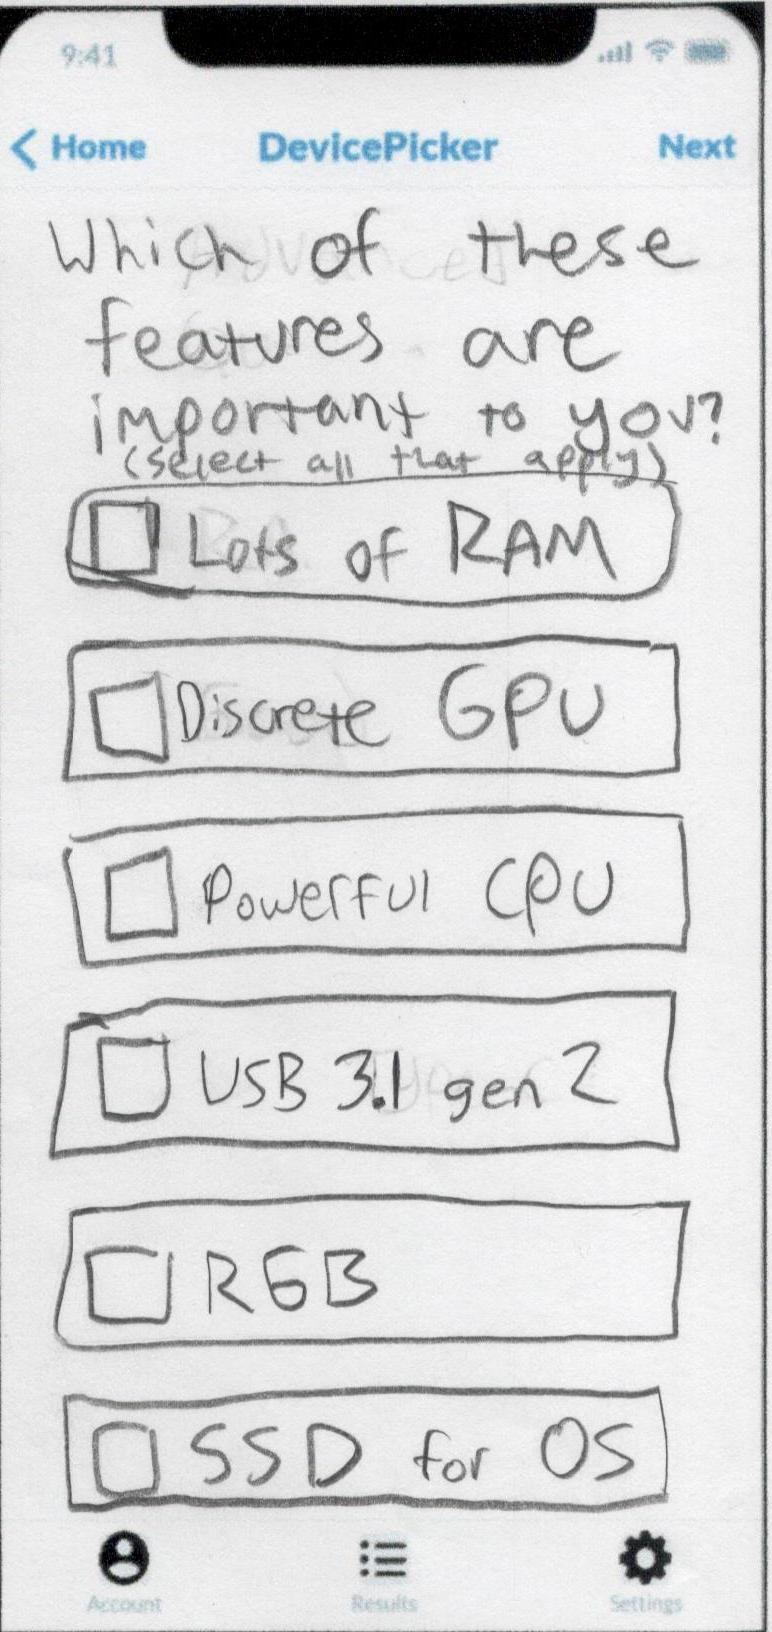 9:41
Home DevicePicker Next
Which of these
features are
important to you?
(select all that apply)
Lots of RAM
Discrete GPU
Powerful CPU
USB 3.1 gen 2
RGB
SSD for OS
Account Results Settings